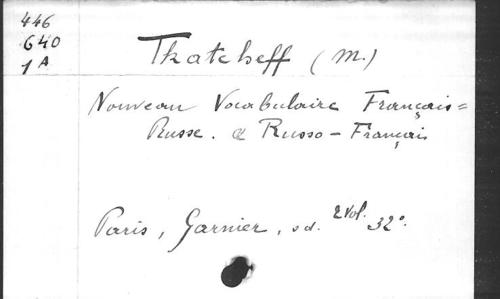 446
640
1 A
Tkatcheff (M.)
Nouveau Vocabulaire Français=
Russe. & Russo-Français
Paris, Garnier, sd. 2 Vol. 32º.